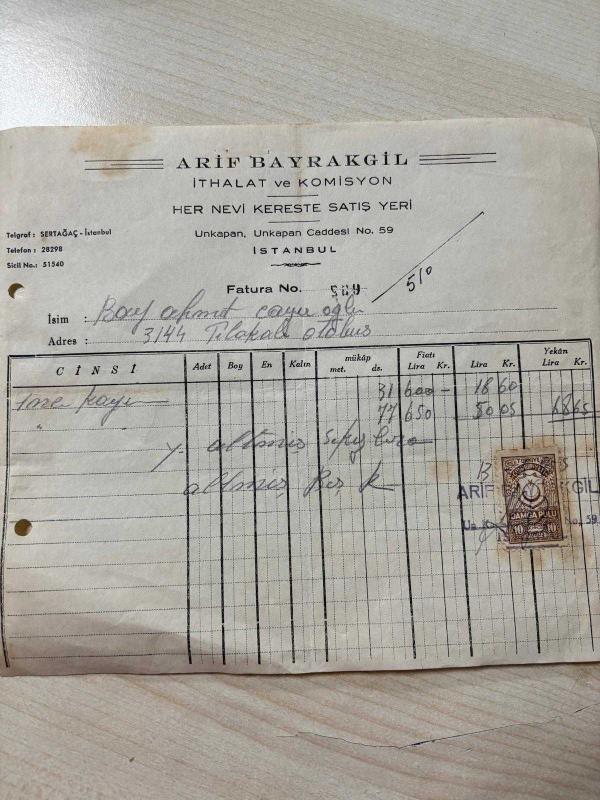 ARİF BAYRAKGİL
İTHALAT ve KOMİSYON
HER NEVİ KERESTE SATIŞ YERİ
Unkapan, Unkapan Caddesi No. 59
İSTANBUL
Telgraf : SERTAĞAÇ - İstanbul
Telefon : 28298
Sicil No.: 51540
Fatura No.
510
İsim : Bay ahmet
Adres : 3144 otobus
CİNSİ Adet Boy En Kalın mükâp met. ds. Fiatı Lira Kr. Lira Kr. Yekûn Lira Kr.
31 600 — 18 60
" " 77 650 50 05 68 65
Y. altmis Sekiz Lira
altmis Beş K
ARİF
DAMGA PULU
10 10
No. 59